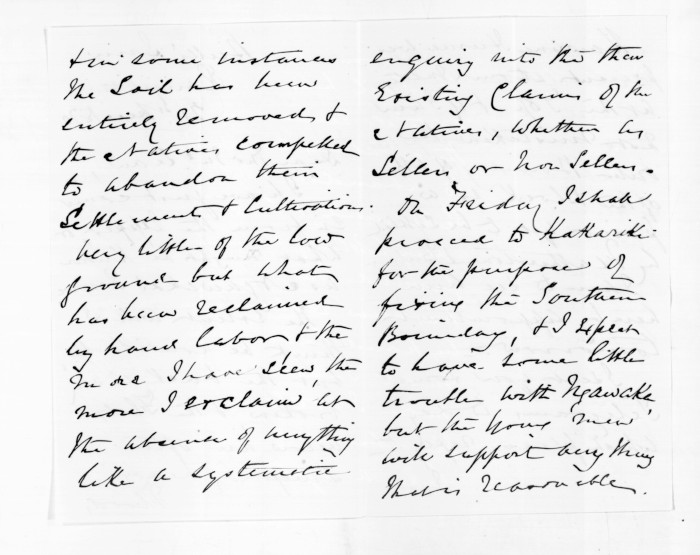 & in some instances
the Soil has been
entirely removed &
the Natives compelled
to abandon their
Settlements & Cultivations.
Very little of the low
ground but what
has been reclaimed
by hand labor & the
more I have seen, the
more I exclaim at
the absence of anything
like a systematic
enquiry into the then
Existing Claims of the
Natives, whether as
Sellers or Non Sellers.
On Friday I shall
proceed to Kakariki
for the purpose of
fixing the Southern
Boundary, & I expect
to have some little
trouble with Ngawaka,
but the young men
will support any thing
that is reasonable.